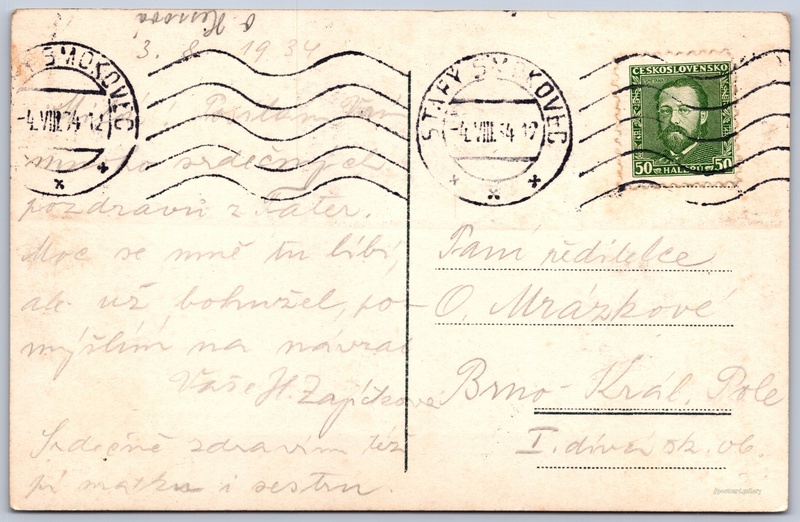 3. 8. 1934
STARÝ SMOKOVEC
-4.VIII.34-12
STARÝ SMOKOVEC
-4.VIII.34-12
ČESKOSLOVENSKO
50 HALÉŘŮ 50
srdečných
pozdravů z Tater.
Moc se mně tu líbí,
ale už bohužel, po-
mýšlím na návrat
Vaše H. Zapík
Srdečně zdravím též
pí matku i sestru.
Paní ředitelce
O. Mrázkové
Brno - Král. Pole
I. dívčí šk. ob.